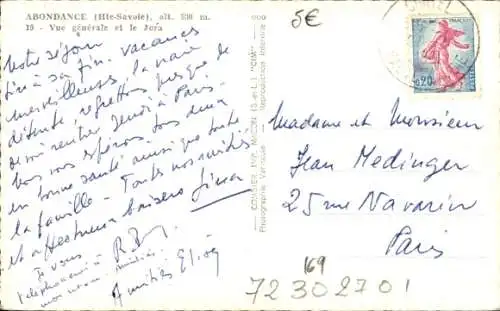 ABONDANCE (Hte-Savoie), alt. 930 m.
19 - Vue générale et le Jora
Notre séjour
tire à sa fin. Vacances
merveilleuses, la vraie
détente, regrettons presque de
devoir rentrer Jeudi à Paris.
Nous vous espérons tous deux
en bonne santé ainsi que toute
la famille - Toutes nos amitiés
et affectueux baisers
Je vous
téléphonerai à
mon retour. Amitiés
Amitiés
COMBIER IMP. MACON (S.-et-L.) "CIM"
Photographie Véritable - Reproduction Interdite
5€
FRANÇAISE
0,20
Madame et Monsieur
Jean Medinger
25 rue Navarin
Paris
169
72302701